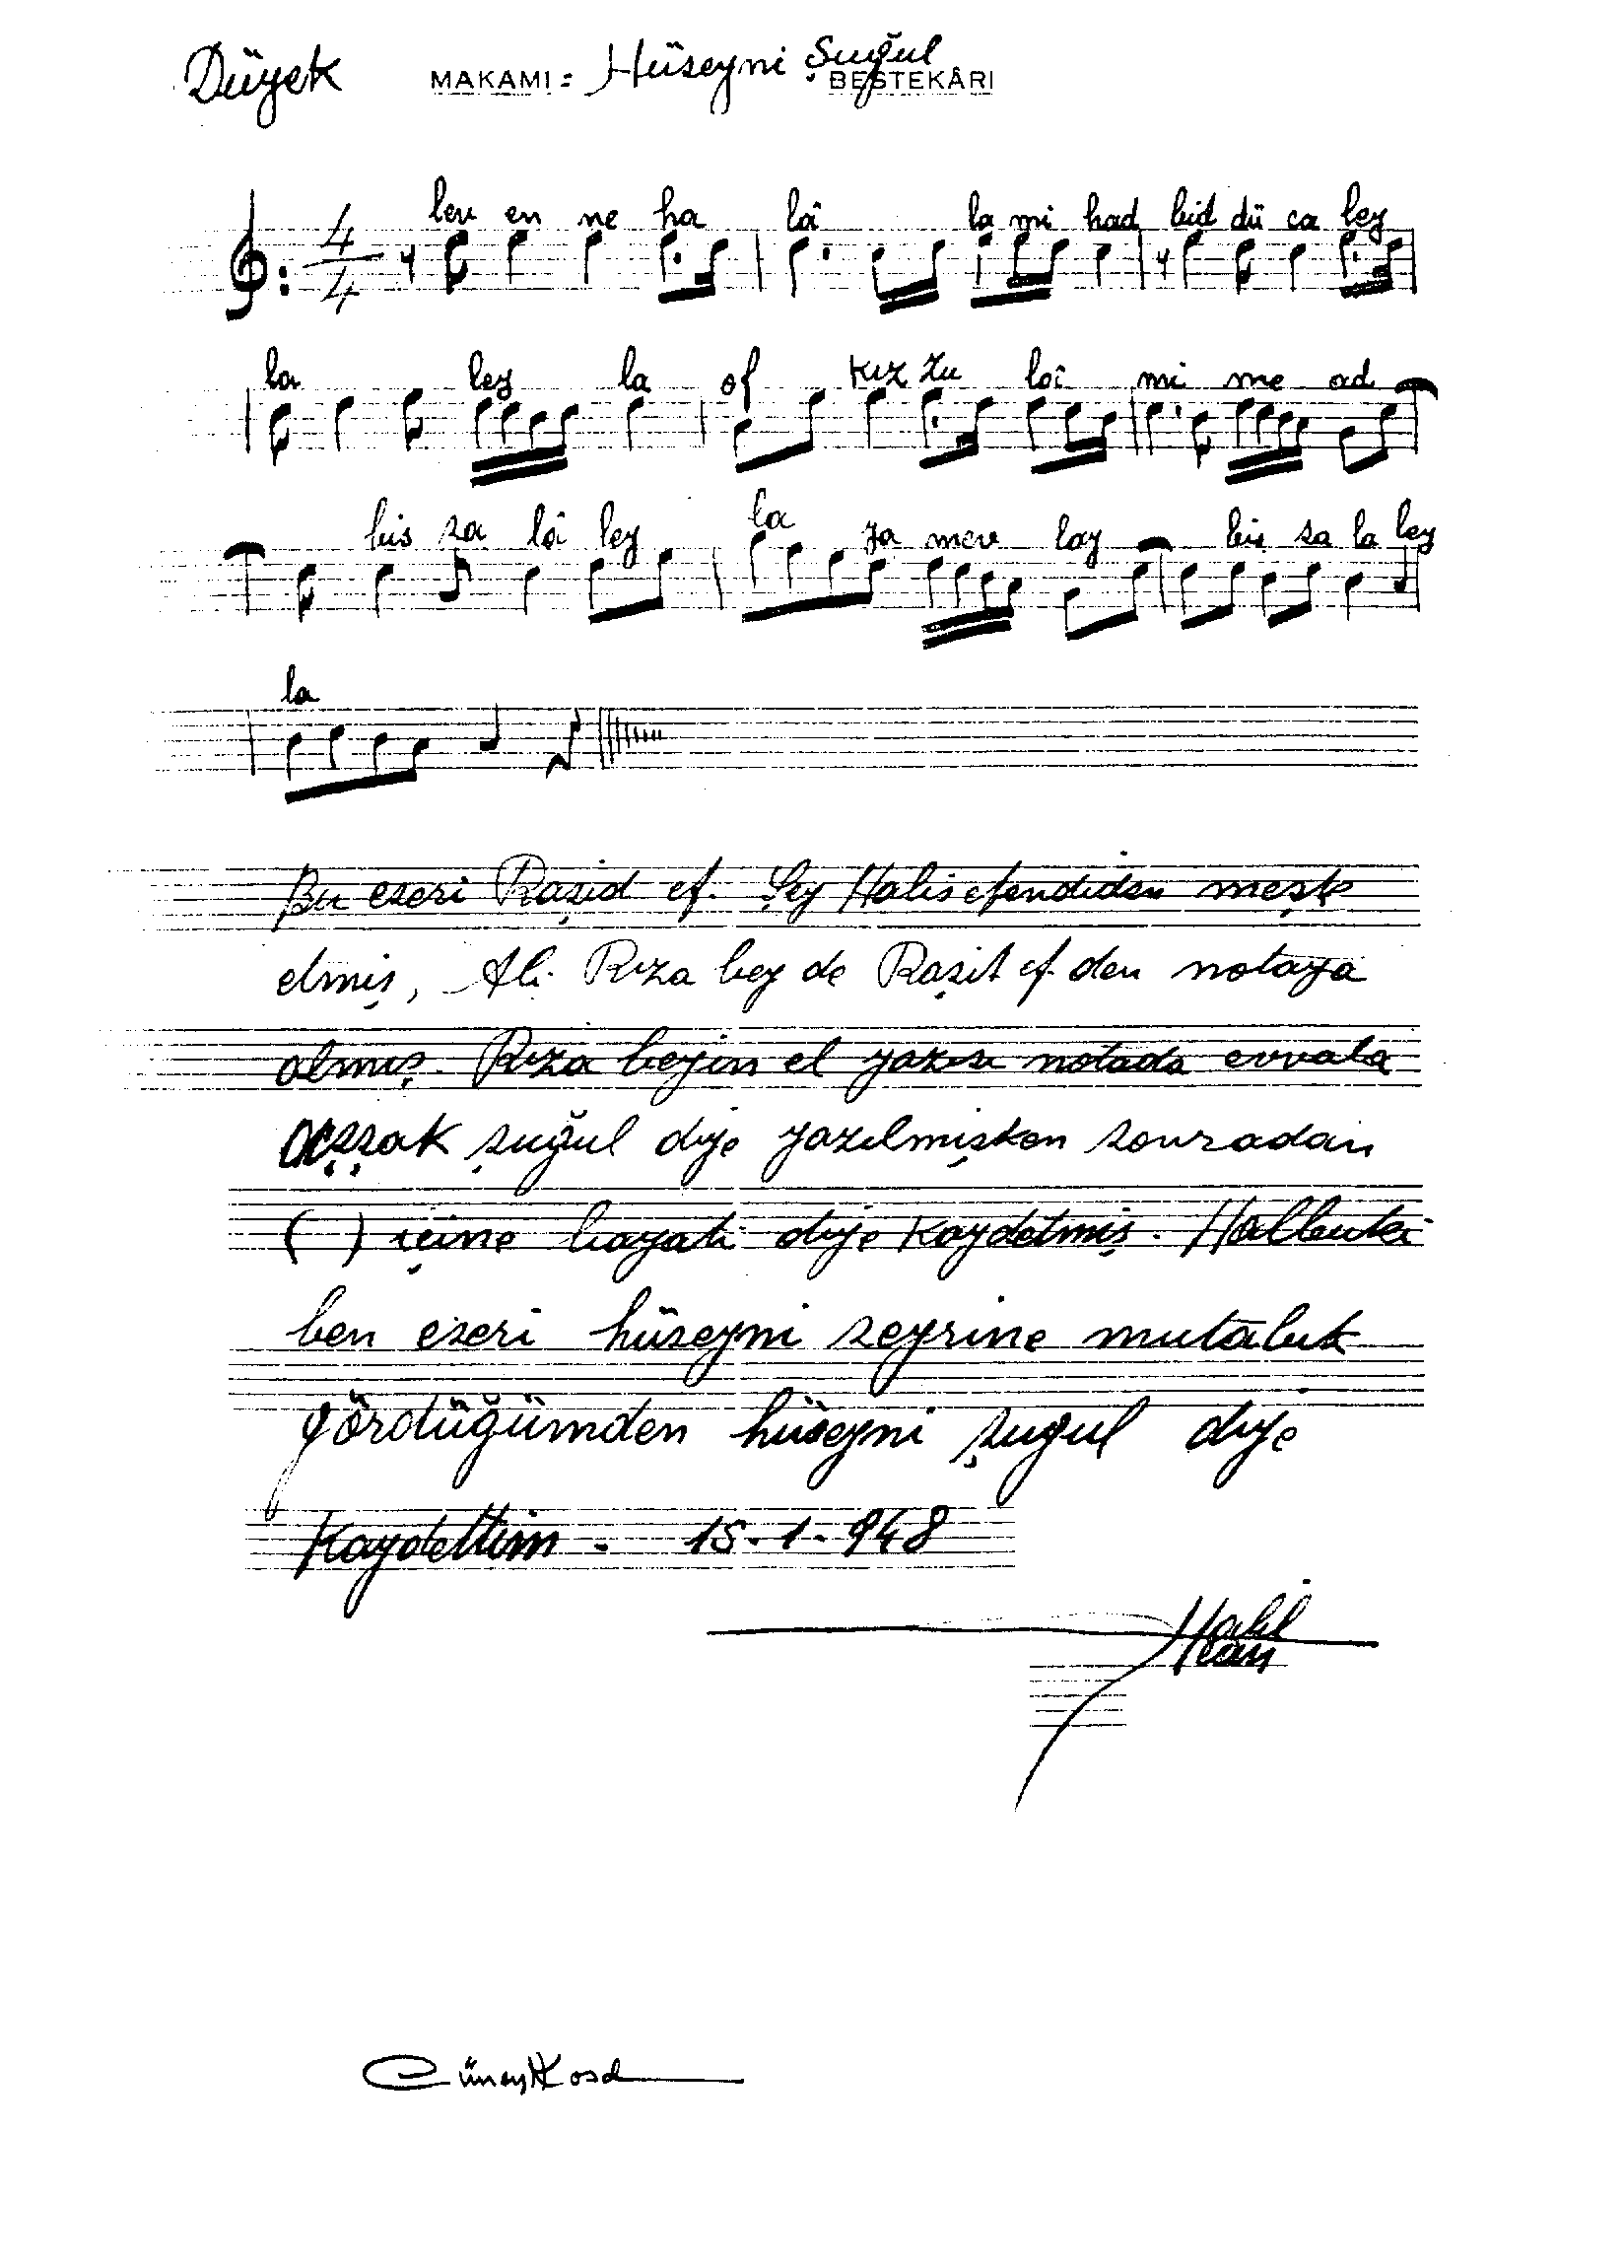 Düyek MAKAMI: Hüseyni Şuğul BESTEKÂRI
lev en ne ha lâ la mi had bid dü ca ley
4
4
la ley la of kız zu lâi mi me ad
bis sa lâ ley la ya mev lay bis sa la ley
la
Bu eseri Raşid ef. Şey Halis efendiden meşk
etmiş, Ali Rıza bey de Raşit ef. den notaya
almış. Rıza beyin el yazısı notada evvala
uşşak şuğul diye yazılmışken sonradan
( ) içine bayati diye kaydetmiş. Halbuki
ben eseri hüseyni seyrine mutabık
gördüğümden hüseyni şugul diye
kaydettim. 15-1-948
Halil
Can
Cüneyt Kosal